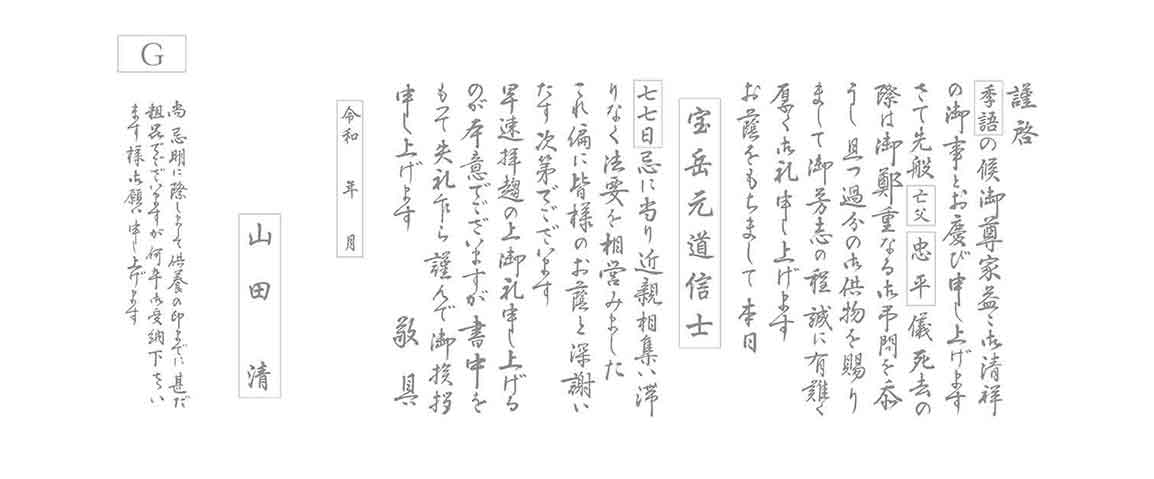 謹啓
季語の候御尊家益々御清祥
の御事とお慶び申し上げます
さて先般 亡父 忠平 儀死去の
際は御鄭重なる御弔問を忝
うし且つ過分の御供物を賜り
まして御芳志の程誠に有難く
厚く御礼申し上げます
お蔭をもちまして本日
宝岳元道信士
七七日忌に当り近親相集い滞
りなく法要を相営みました
これ偏に皆様のお蔭と深謝い
たす次第でございます
早速拝趨の上御礼申し上げる
のが本意でございますが書中を
もって失礼乍ら謹んで御挨拶
申し上げます 敬具
令和 年 月
山田 清
尚 忌明に際しまして供養の印までに甚だ
粗品でございますが何卒御受納下さい
ます様御願い申し上げます
G